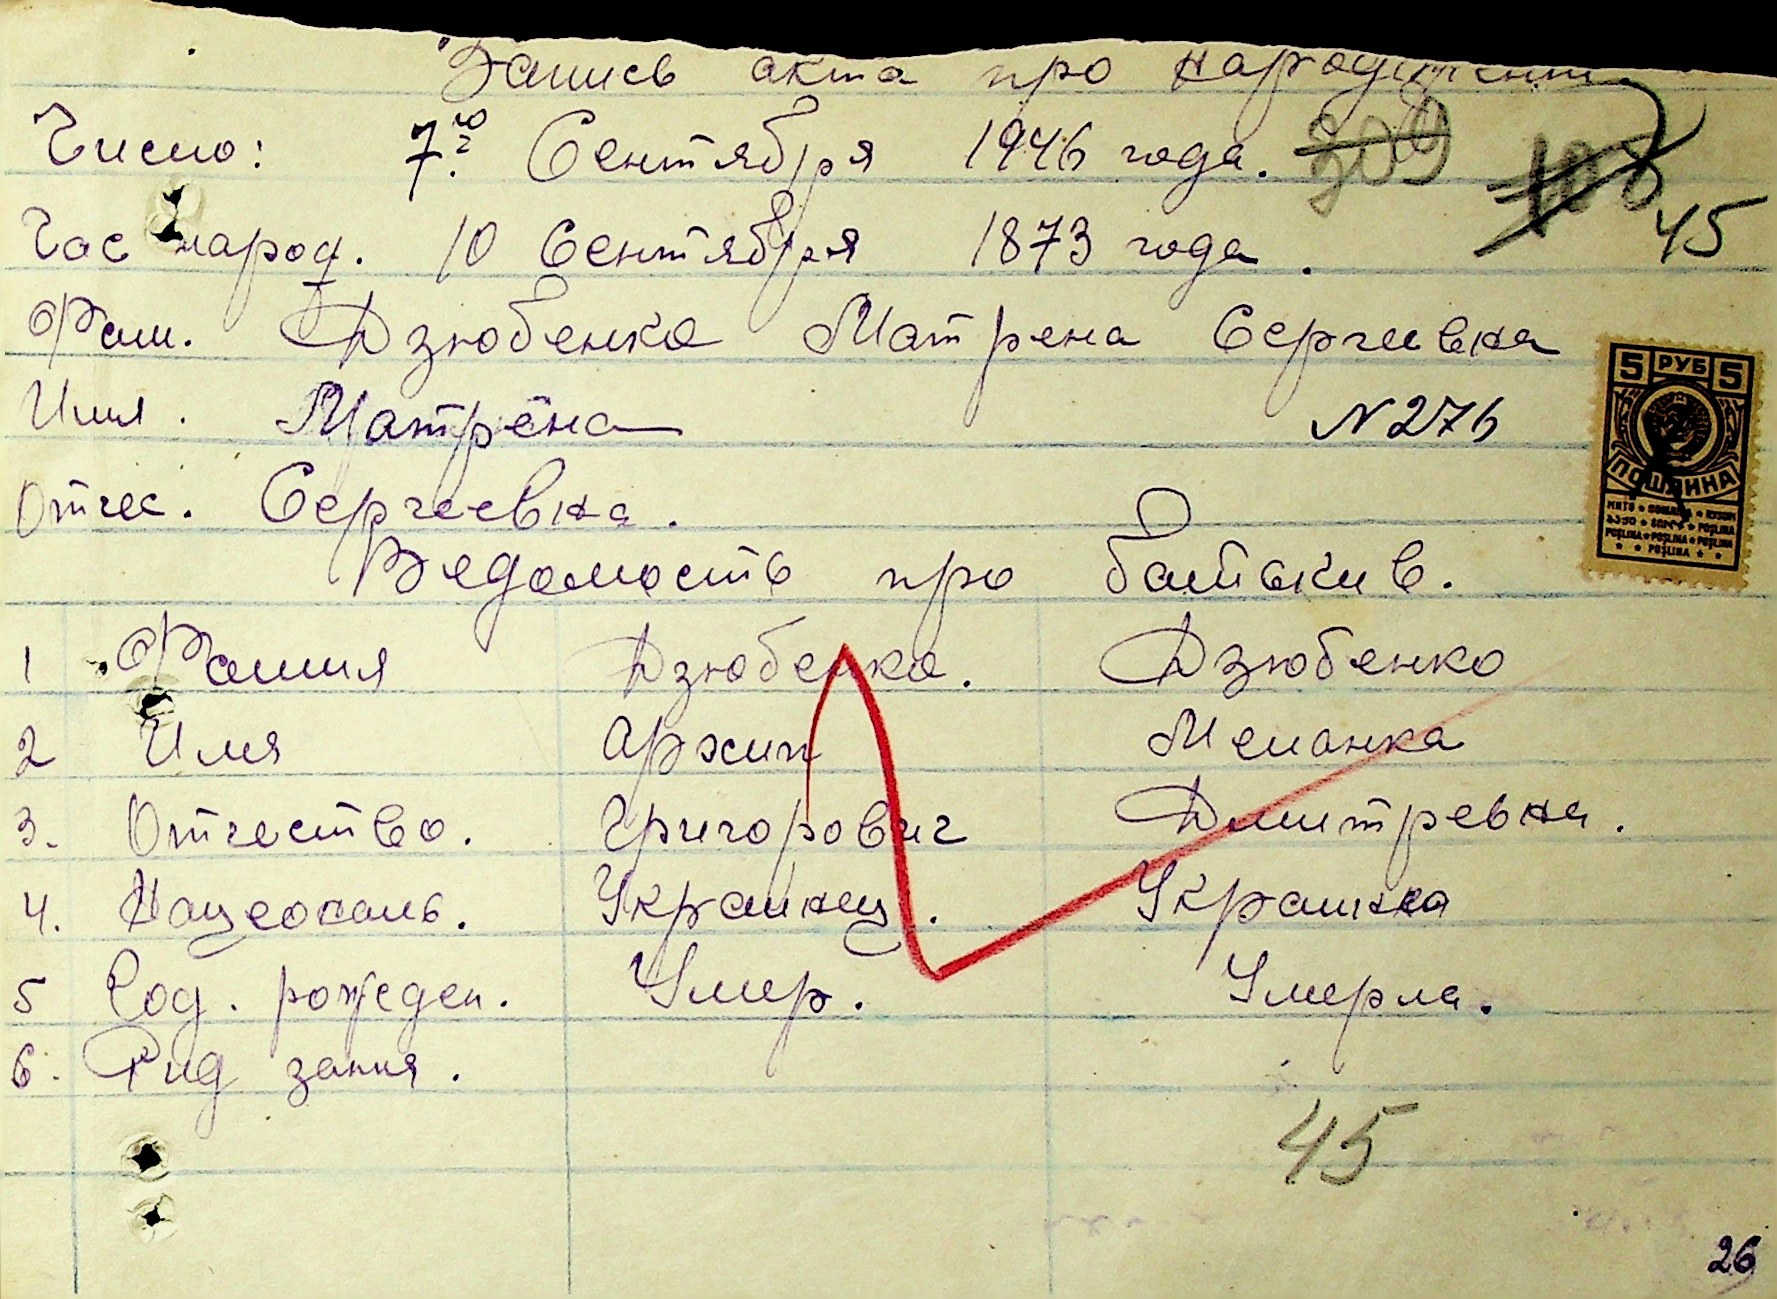 Запись акта про народження
Число: 7го Сентября 1946 года. 309 108
Час народ. 10 Сентября 1873 года. 45
Фам. Дзюбенко Матрена Сергиевна
Имя. Матрёна N 276
Отчес. Сергеевна.
5 РУБ 5
ПОШЛИНА
POŞLINA
Ведомость про батькив.
1 Фамия Дзюбенко. Дзюбенко
2 Имя Архип Меланка
3. Отчество. Григорович Дмитревна.
4. Нацеональ. Украинец. Украинка
5 Год. рожден. Умер. Умерла.
6. Рид зания.
45
26